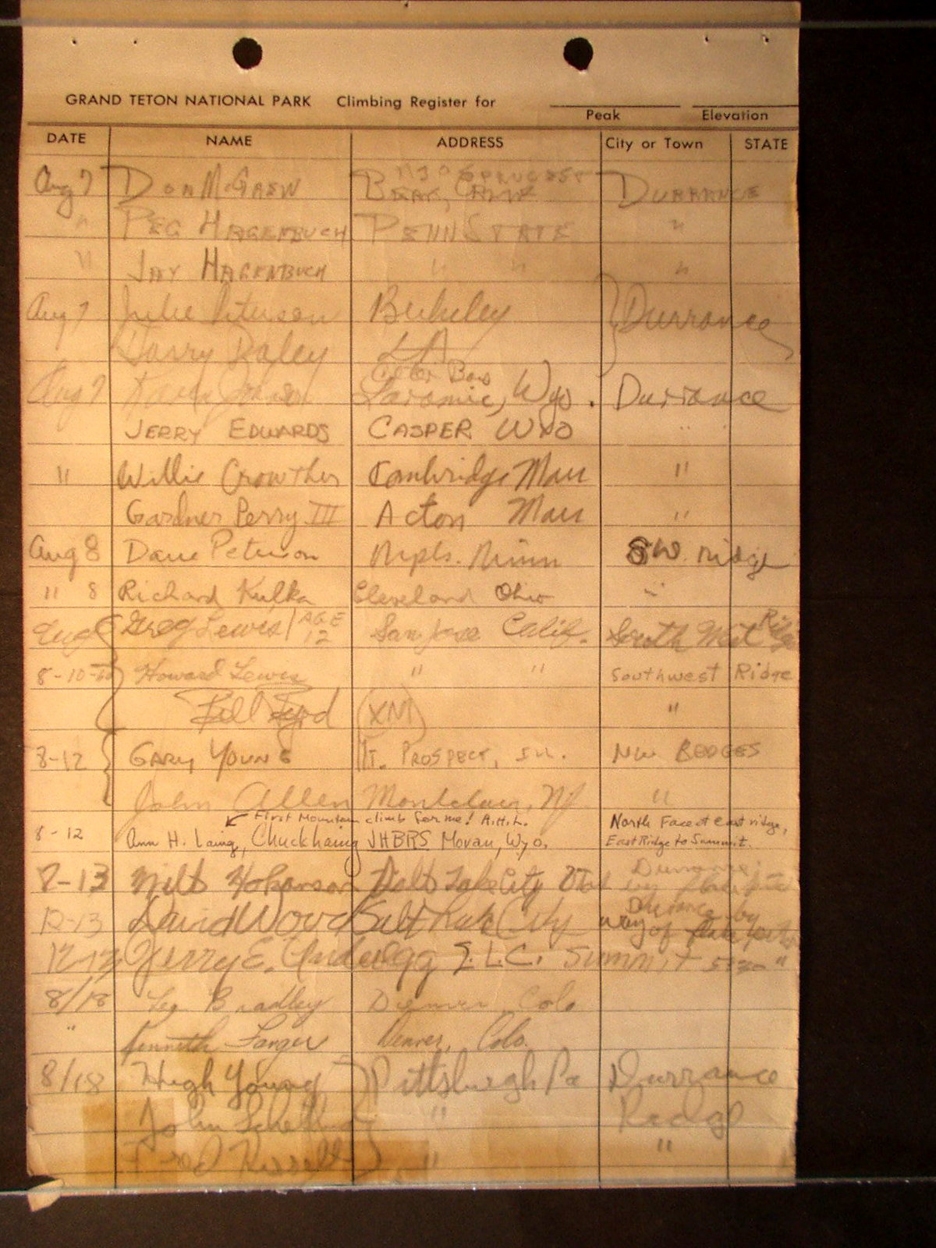 GRAND TETON NATIONAL PARK Climbing Register for
Peak Elevation
DATE NAME ADDRESS City or Town STATE
Aug 7 DON MCGREW DURRANCE
" PEG HAGENBUCH PENN STATE "
" JAY HAGENBUCH " " "
Aug 7 Julie Peterson Berkeley Durrance
Harry Daley LA
Aug 7 Karen Johnson Laramie, Wyo. Durrance
JERRY EDWARDS CASPER WYO "
" Willie Crowther Cambridge Mass "
Gardner Perry III Acton Mass "
Aug 8 Dave Peterson Mpls. Minn SW. ridge
" 8 Richard Kulka Cleveland Ohio "
Aug Greg Lewis/AGE 12 San Jose Calif. South West Ridge
8-10 Howard Lewis " " Southwest Ridge
Bill Byrd (XM) "
8-12 GARY YOUNG MT. PROSPECT, ILL. NW LEDGES
John Allen Montclair, NJ "
First Mountain climb for me! A.H.L. North Face at east ridge,
8-12 Ann H. Laing, Chuck Laing JHBRS Moran, Wyo. East Ridge to Summit.
8-13 Milt Hokanson Salt Lake City Utah by
12-13 David Wood Salt Lake City Durrance by way of
12-13 Jerry E. S.L.C. Summit "
8/18 Bradley Denver Colo
" Kenneth Denver, Colo.
8/18 Hugh Young Pittsburgh Pa Durrance
John " Ridge
Fred " "